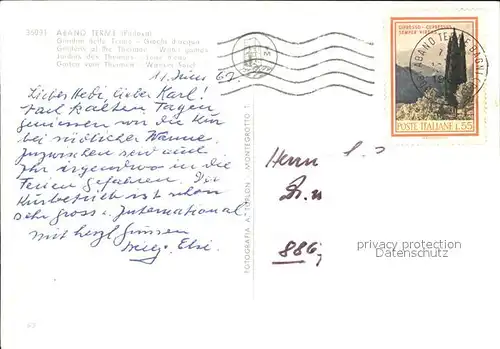 35031 ABANO TERME (Padova)
Giardini delle Terme - Giochi d'acqua
Gardens of the Thermae - Water games
Jardins des Thermes - Jeux d'eau
Garten vom Thermen - Wasser Spiel
11. Juni 67.
Liebes Hebi, lieber Karl!
Nach kalten Tagen
geniessen wir die Kur
bei südlicher Wärme.
Inzwischen seid auch
Ihr irgendwo in die
Ferien gefahren. Der
Kurbetrieb ist schon
sehr gross u. International
mit herzl. Grüssen
Elsi.
FOTOGRAFIA MONTEGROTTO T.
CIPRESSO - CUPRESSUS
SEMPER VIRENS
POSTE ITALIANE L.55
ABANO TERME BAGNI
Herrn
886
privacy protection
watermark AnsichtskartenPool.de